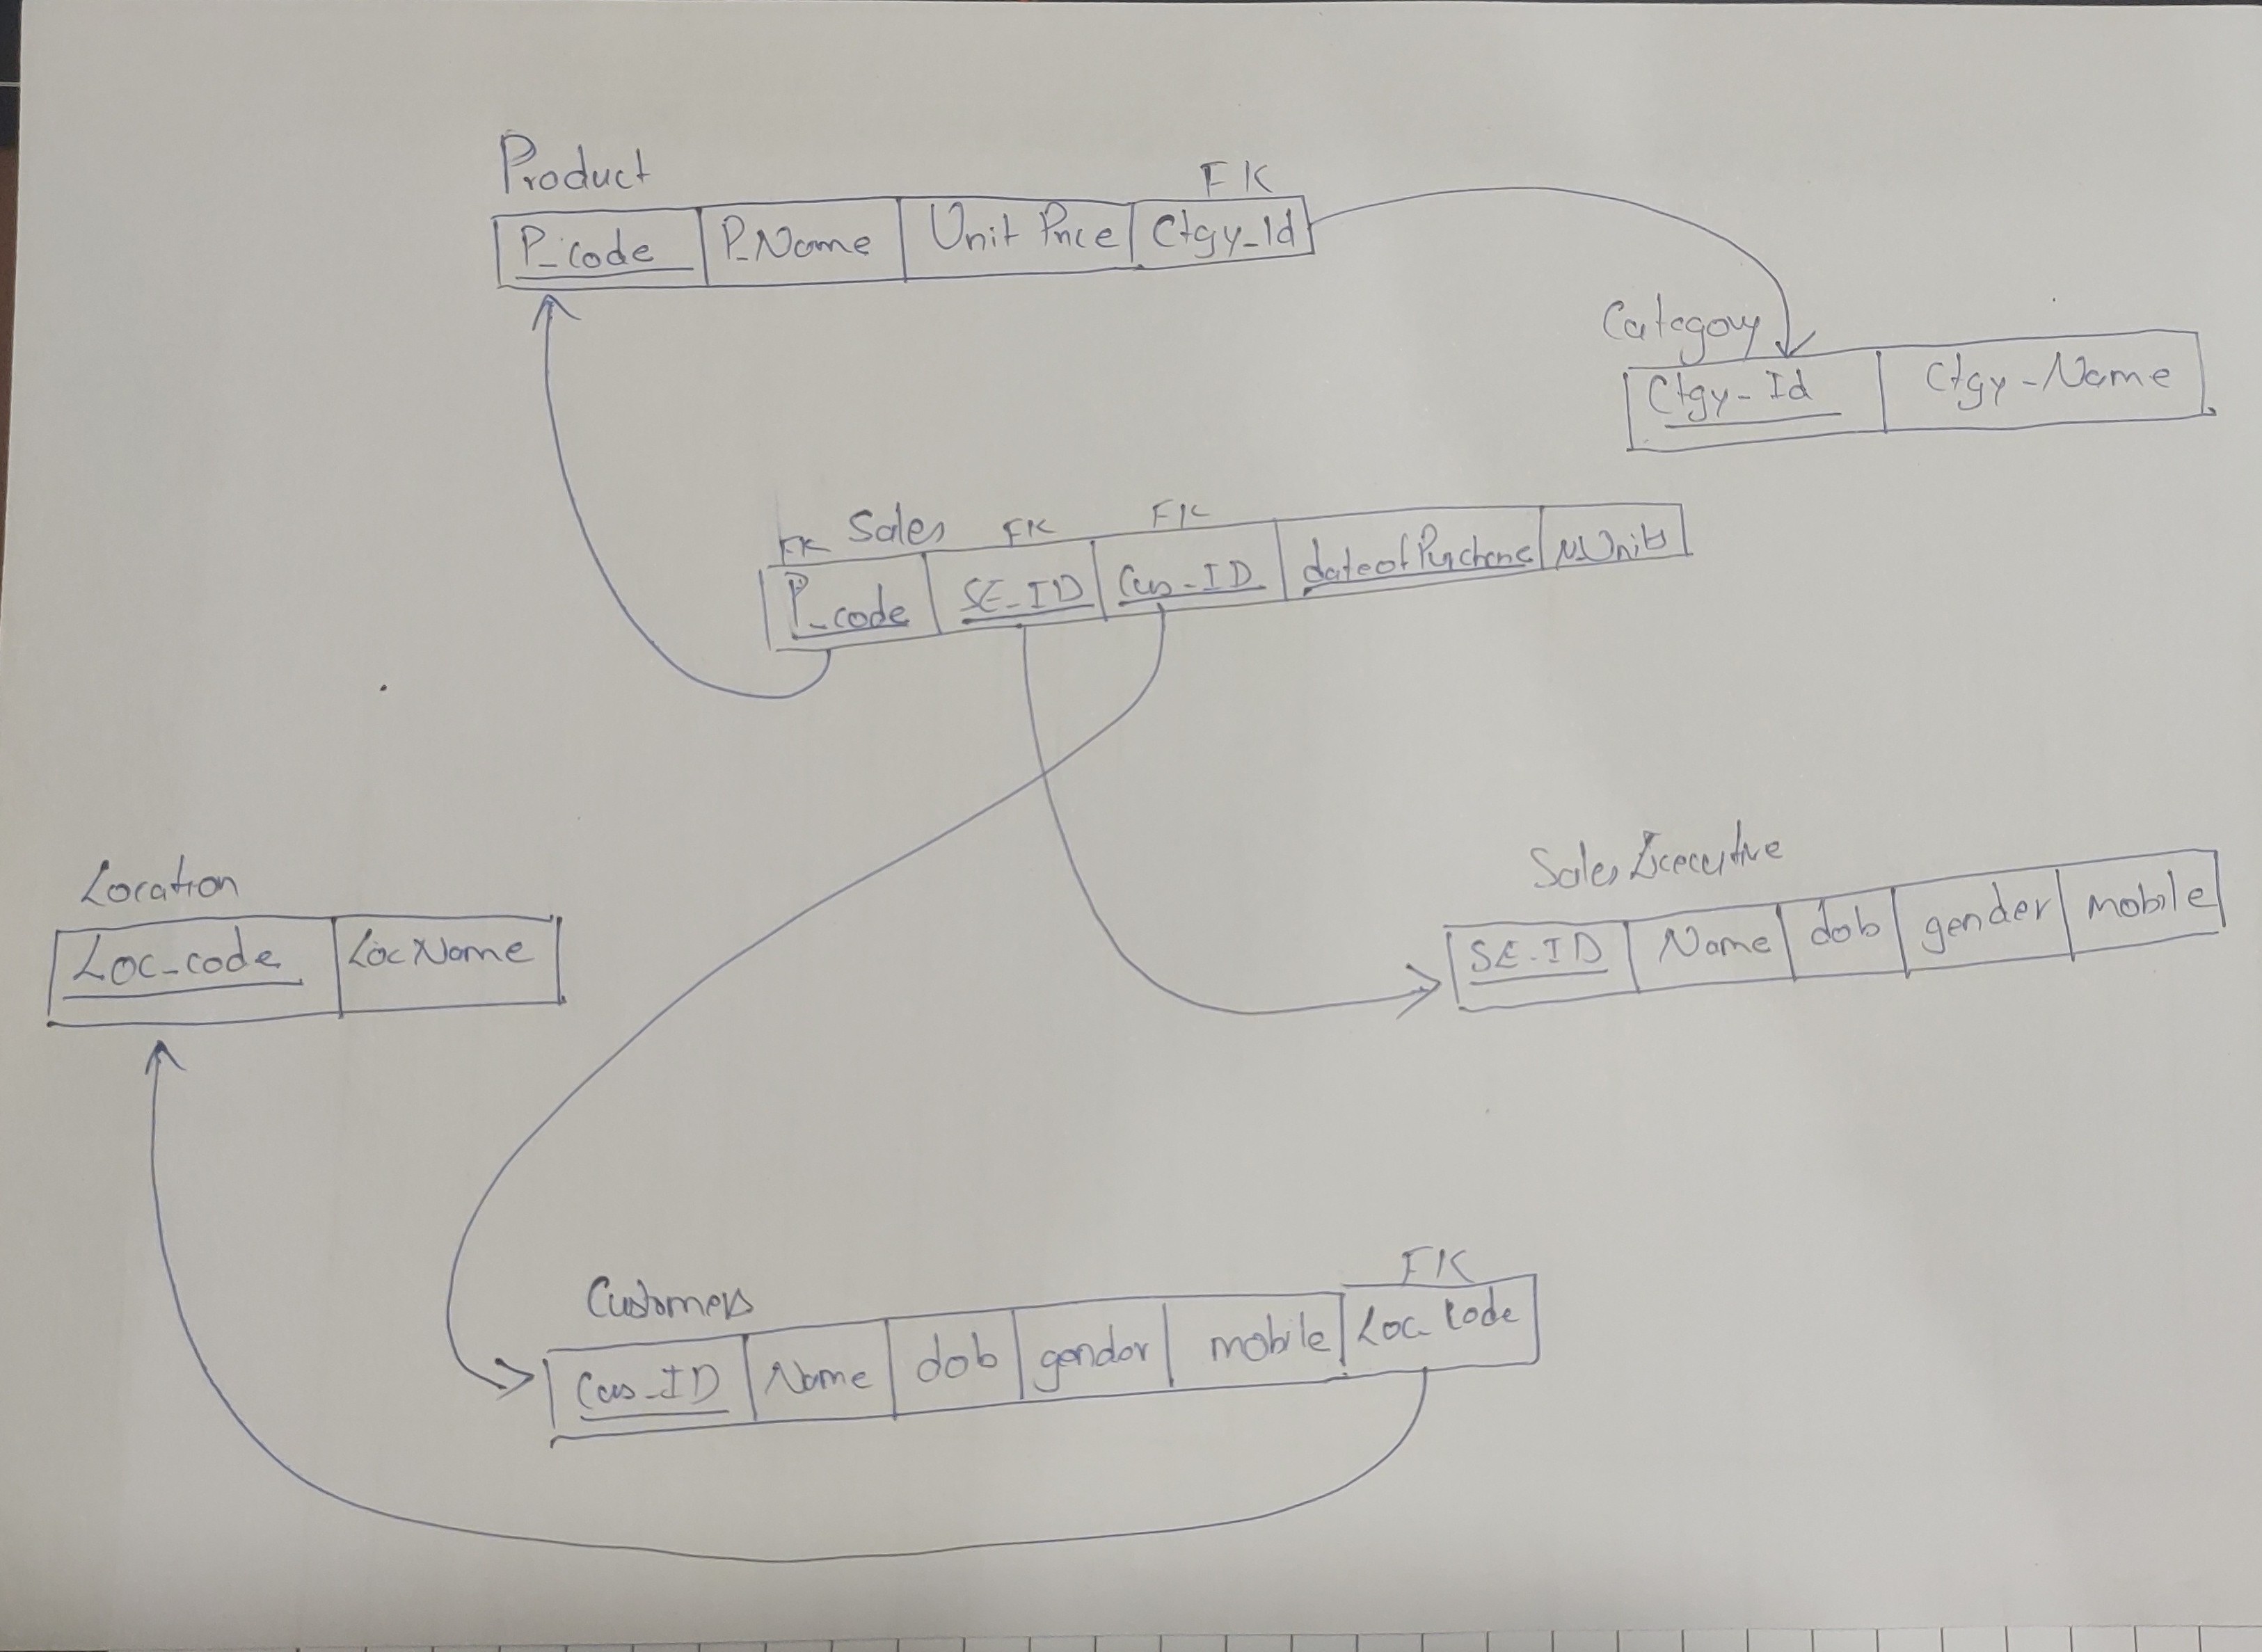 Product
FK
P_code P_Name Unit Price Ctgy_Id
Category
Ctgy-Id Ctgy-Name
FK Sales FK FK
P_code SE_ID Cus-ID dateofPurchase NUnits
Location
Loc-code LocName
Sales Executive
SE-ID Name dob gender mobile
FK
Customers
Cus_ID Name dob gender mobile Loc_Code